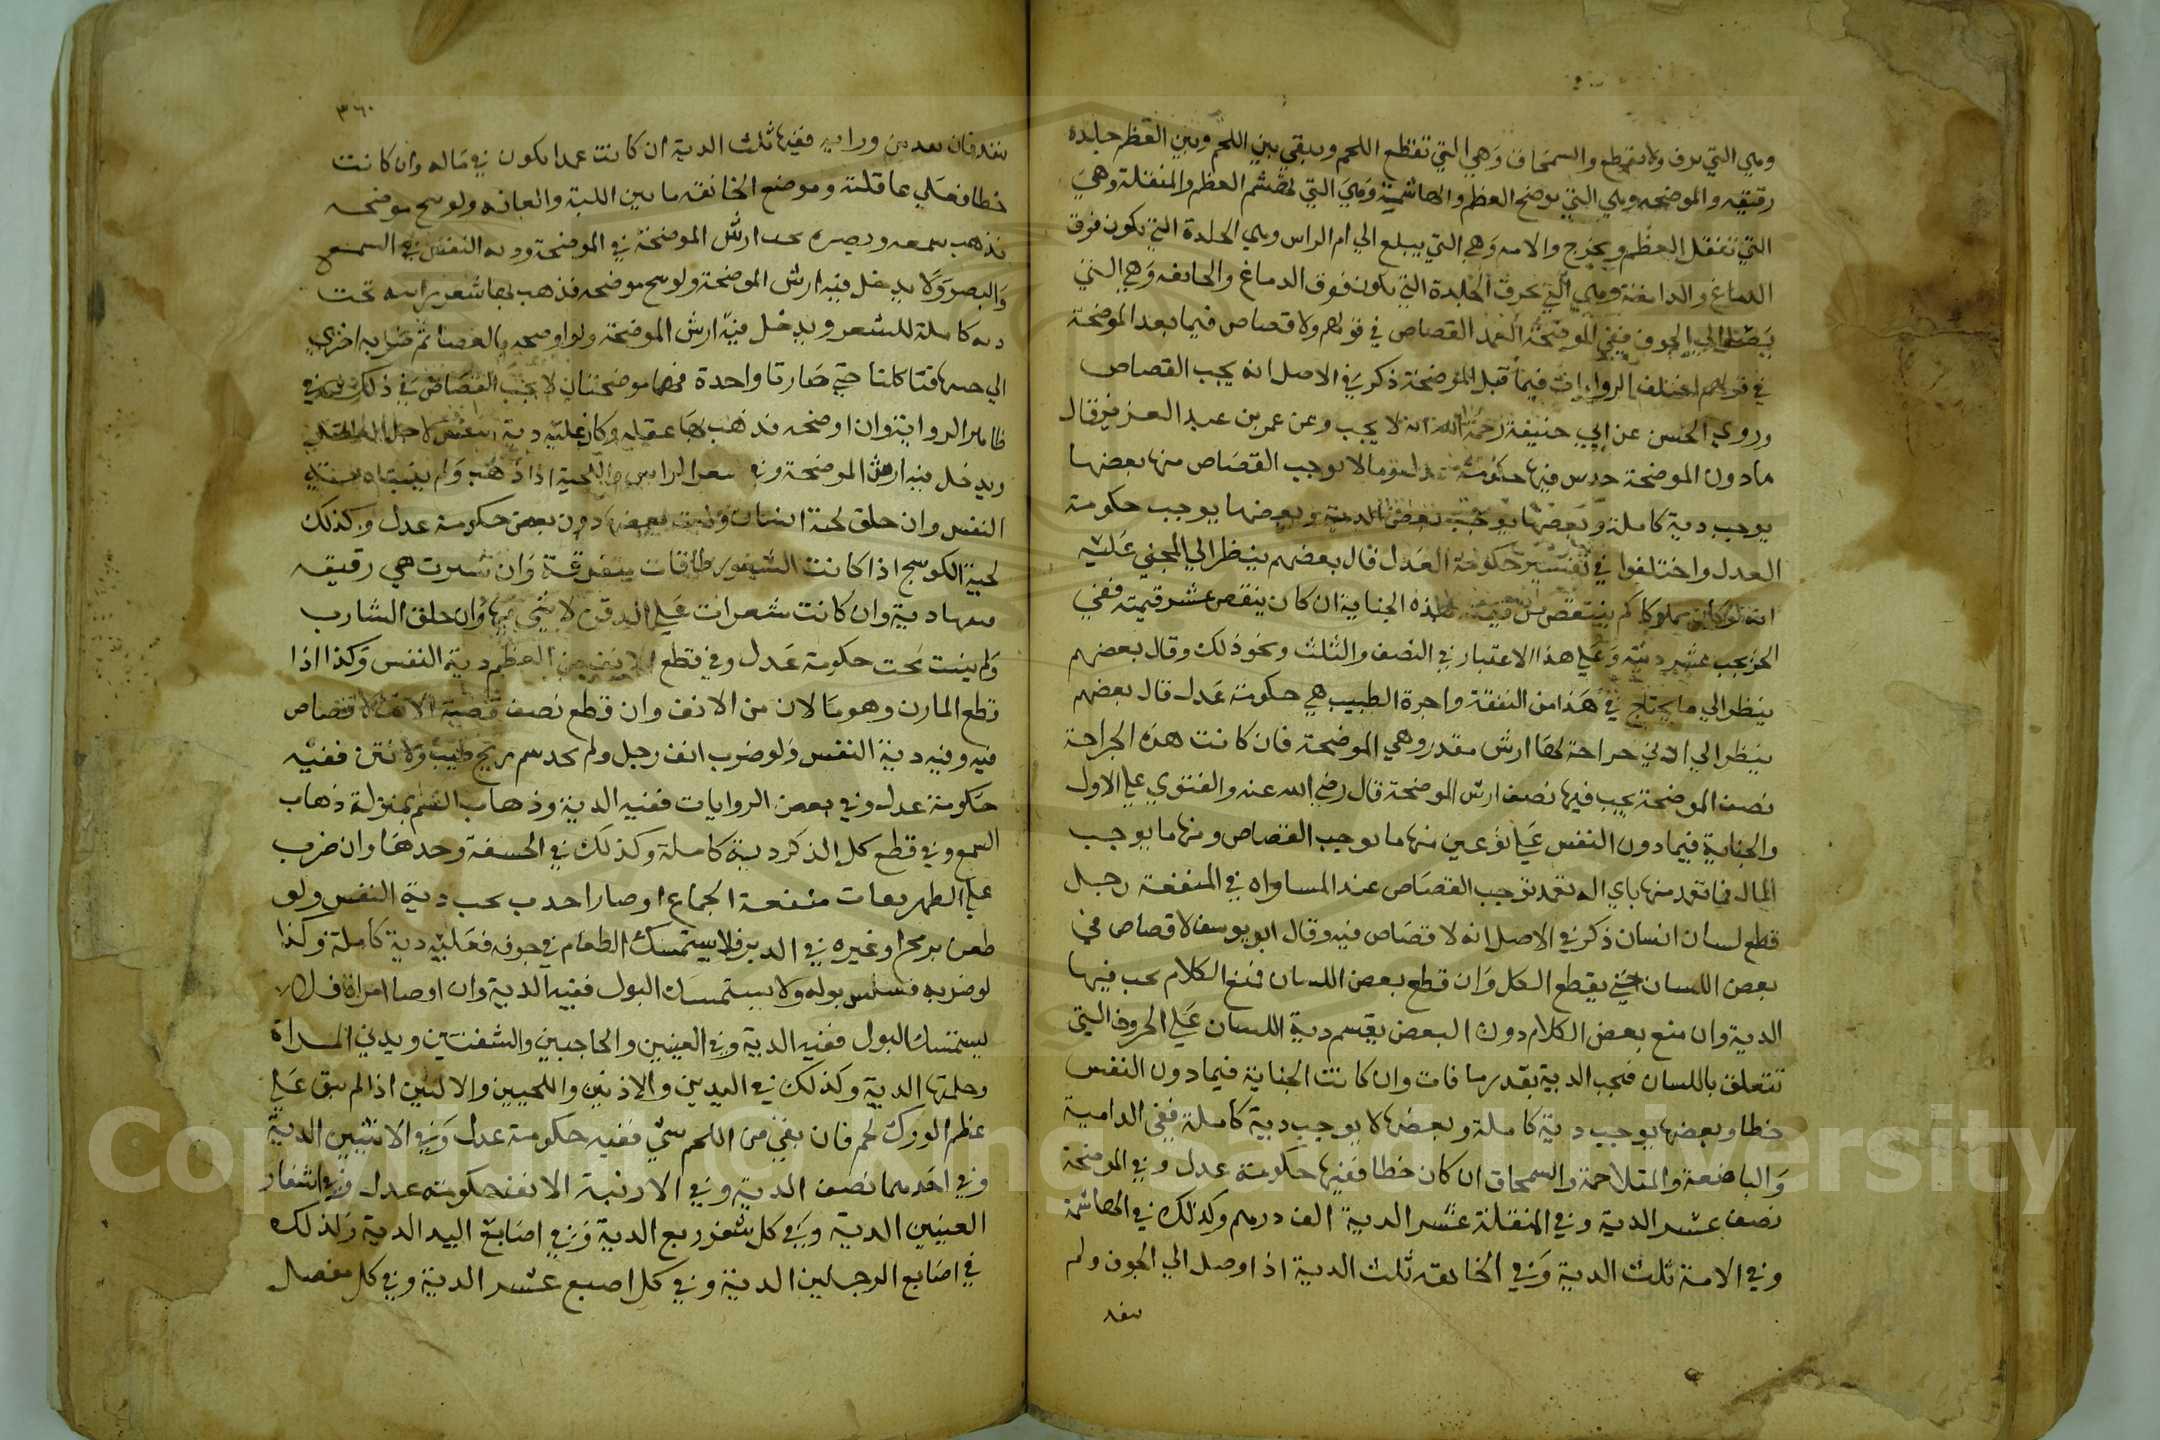 وهي التي تعرف ولا تقطع والسمحاق وهي التي تقطع اللحم ويبقي بين اللحم وبين العظم جلدة
رقيقه والموضحه وهي التي توضح العظم والهاشمية وهي التي تهشم العظم والمنقلة وهي
التي تنقل العظم ويخرج والامه وهي التي يبلع الي ام الراس وهي الجلدة التي تكون فوق
الدماغ والدامغة وهي التي تخرق الجلدة التي تكون فوق الدماغ والجائفه وهي التي
يصل الي الجوف ففي الموضحة العمد القصاص في قولهم ولا قصاص فيما بعد الموضحة
في قولهم اختلف الروايات فيما قبل الموضحة ذكر في الاصل انه يجب القصاص
وروي الحسن عن ابي حنيفة رحمة الله انه لا يجب وعن عمر بن عبد العزيز قال
مادون الموضحة خدس فيها حكومة عدل وما لا يوجب القصاص منها بعضها
يوجب دية كاملة وبعضها يوجب بعض الدية وبعضها يوجب حكومة
العدل واختلفوا في تفسير حكومة العدل قال بعضهم ينظر الي المجني عليه
انه لو كان مملوكا كم ينتقص من قيمته بهذه الجناية ان كان ينقص عشر قيمته ففي
الحر يجب عشر ديته وعلي هذا الاعتبار في النصف والثلث ونحو ذلك وقال بعضهم
ينظر الي ما يحتاج في هذا من النفقة واجرة الطبيب هي حكومة عدل قال بعضهم
ينظر الي ادني جراحة لها ارش مقدر وهي الموضحة فان كانت هذه الجراحة
نصف الموضحة يجب فيها نصف ارش الموضحة قال رضي الله عنه والفتوي علي الاول
والجناية فيما دون النفس علي نوعين منها ما يوجب القصاص ومنها ما يوجب
المال فما تعمد منها باي اله تعمد توجب القصاص عند المساواه في المنفعة رجل
قطع لسان انسان ذكر في الاصل انه لا قصاص فيه وقال ابو يوسف لا قصاص في
بعض اللسان حتي يقطع الكل وان قطع بعض اللسان فمنع الكلام يجب فيها
الدية وان منع بعض الكلام دون البعض يقسم دية اللسان علي الحروف التي
تتعلق باللسان فيجب الدية بقدر ما فات وان كانت الجناية فيما دون النفس
خطا وبعضها يوجب دية كاملة وبعضها لا يوجب دية كاملة ففي الدامية
والباضعة والمتلاحمة والسمحاق ان كان خطا ففيها حكومة عدل وفي الموضحة
نصف عشر الدية وفي المنقلة عشر الدية الف درهم وكذلك في الهاشمة
وفي الامة ثلث الدية وفي الجائفه ثلث الدية اذا وصل الي الجوف ولم
ينفد
٣٦٠
ينفد فان نفد من ورايه ففيها ثلث الدية ان كانت عمدا يكون في ماله وان كانت
خطا فعلي عاقلته وموضع الجائفه ما بين اللبة والعانه ولو شج موضحه
فذهب سمعه وبصره يجب ارش الموضحة في الموضحة وديه النفس في السمع
والبصر ولا يدخل فيه ارش الموضحة ولو شج موضحه فذهب بها شعر راسه تجب
ديه كاملة للشعر ويدخل فيه ارش الموضحة ولو اوضحه بالعصا ثم ضربه اخري
الي جنبها فتاكلتا حتي صارتا واحدة فهما موضحتان لا يجب القصاص في ذلك في
ظاهر الرواية وان اوضحه فذهب بها عقله وكان عليه دية النفس لاجل العقل
ويدخل فيه ارش الموضحة وفي شعر الراس واللحية اذا ذهب ولم ينبت ديه
النفس وان حلق لحية انسان ونبت بعضها دون بعض حكومة عدل وكذلك
لحية الكوسج اذا كانت الشعور طاقات متفرقة وان سترت هي رقيقه
فيها دية وان كانت شعرات علي الدقن لا شي فيها وان حلق الشارب
ولم ينبت تجب حكومة عدل وفي قطع الانف من العظم دية النفس وكذا اذا
قطع المارن وهو ما لان من الانف وان قطع نصف قصبة الانف لا قصاص
فيه وفيه دية النفس ولو ضرب انف رجل ولم يجد شم ريح طيب ولا نتن ففيه
حكومة عدل وفي بعض الروايات ففيه الدية وذهاب الشم بمنزلة ذهاب
السمع وفي قطع كل الذكر دية كاملة وكذلك في الحشفة وحدها وان ضرب
علي الظهر ففات منفعة الجماع او صار احدب يجب دية النفس ولو
طعن برمح او غيره في الدبر فلا يستمسك الطعام في جوفه فعليه دية كاملة وكذا
لو ضربه فسلس بوله ولا يستمسك البول ففيه الدية وان افضا امراة فلا
يستمسك البول ففيه الدية وفي العينين والحاجبين والشفتين وثديي المراة
وحلمتها الدية وكذلك في اليدين والاذنين واللحيين والاليتين اذا لم يبق علي
عظم الورك لحم فان بقي من اللحم شي ففيه حكومة عدل وفي الانثيين الدية
وفي احدهما نصف الدية وفي الارنبة الانف حكومة عدل وفي اشفار
العينين الدية وفي كل شفر ربع الدية وفي اصابع اليد الدية وكذلك
في اصابع الرجلين الدية وفي كل اصبع عشر الدية وفي كل مفصل
Copyright © King Saud University